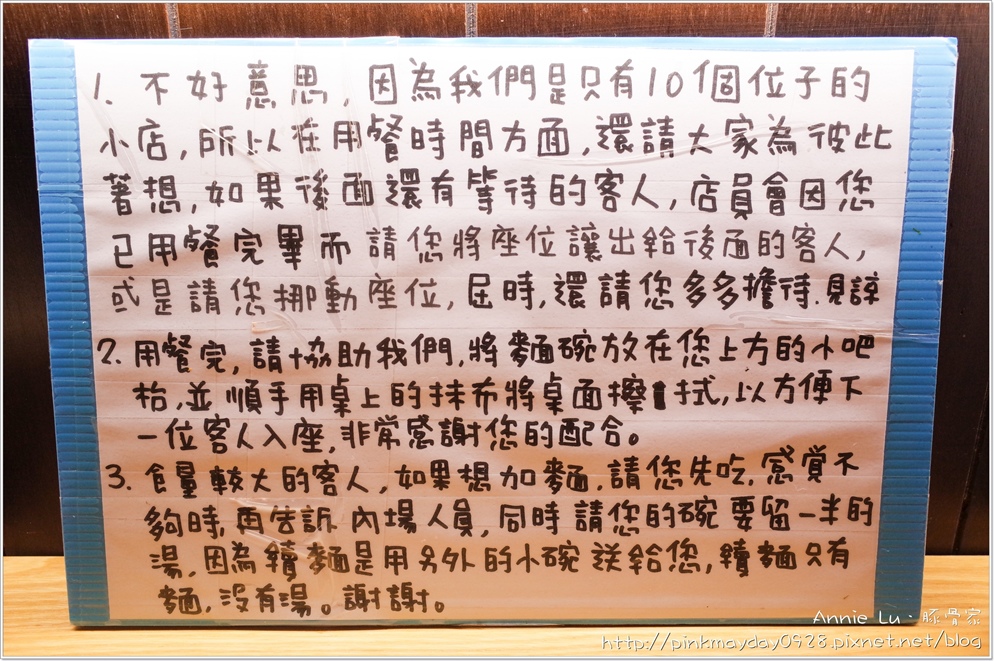 1. 不好意思，因為我們是只有10個位子的
小店，所以在用餐時間方面，還請大家為彼此
著想，如果後面還有等待的客人，店員會因您
已用餐完畢而請您將座位讓出給後面的客人，
或是請您挪動座位，屆時，還請您多多擔待.見諒
2. 用餐完，請協助我們，將麵碗放在您上方的小吧
枱，並順手用桌上的抹布將桌面擦拭，以方便下
一位客人入座，非常感謝您的配合。
3. 食量較大的客人，如果想加麵，請您先吃，感覺不
夠時，再告訴內場人員，同時請您的碗要留一半的
湯，因為續麵是用另外的小碗送給您，續麵只有
麵，沒有湯。謝謝。
Annie Lu．豚骨家
http://pinkmayday0928.pixnet.net/blog